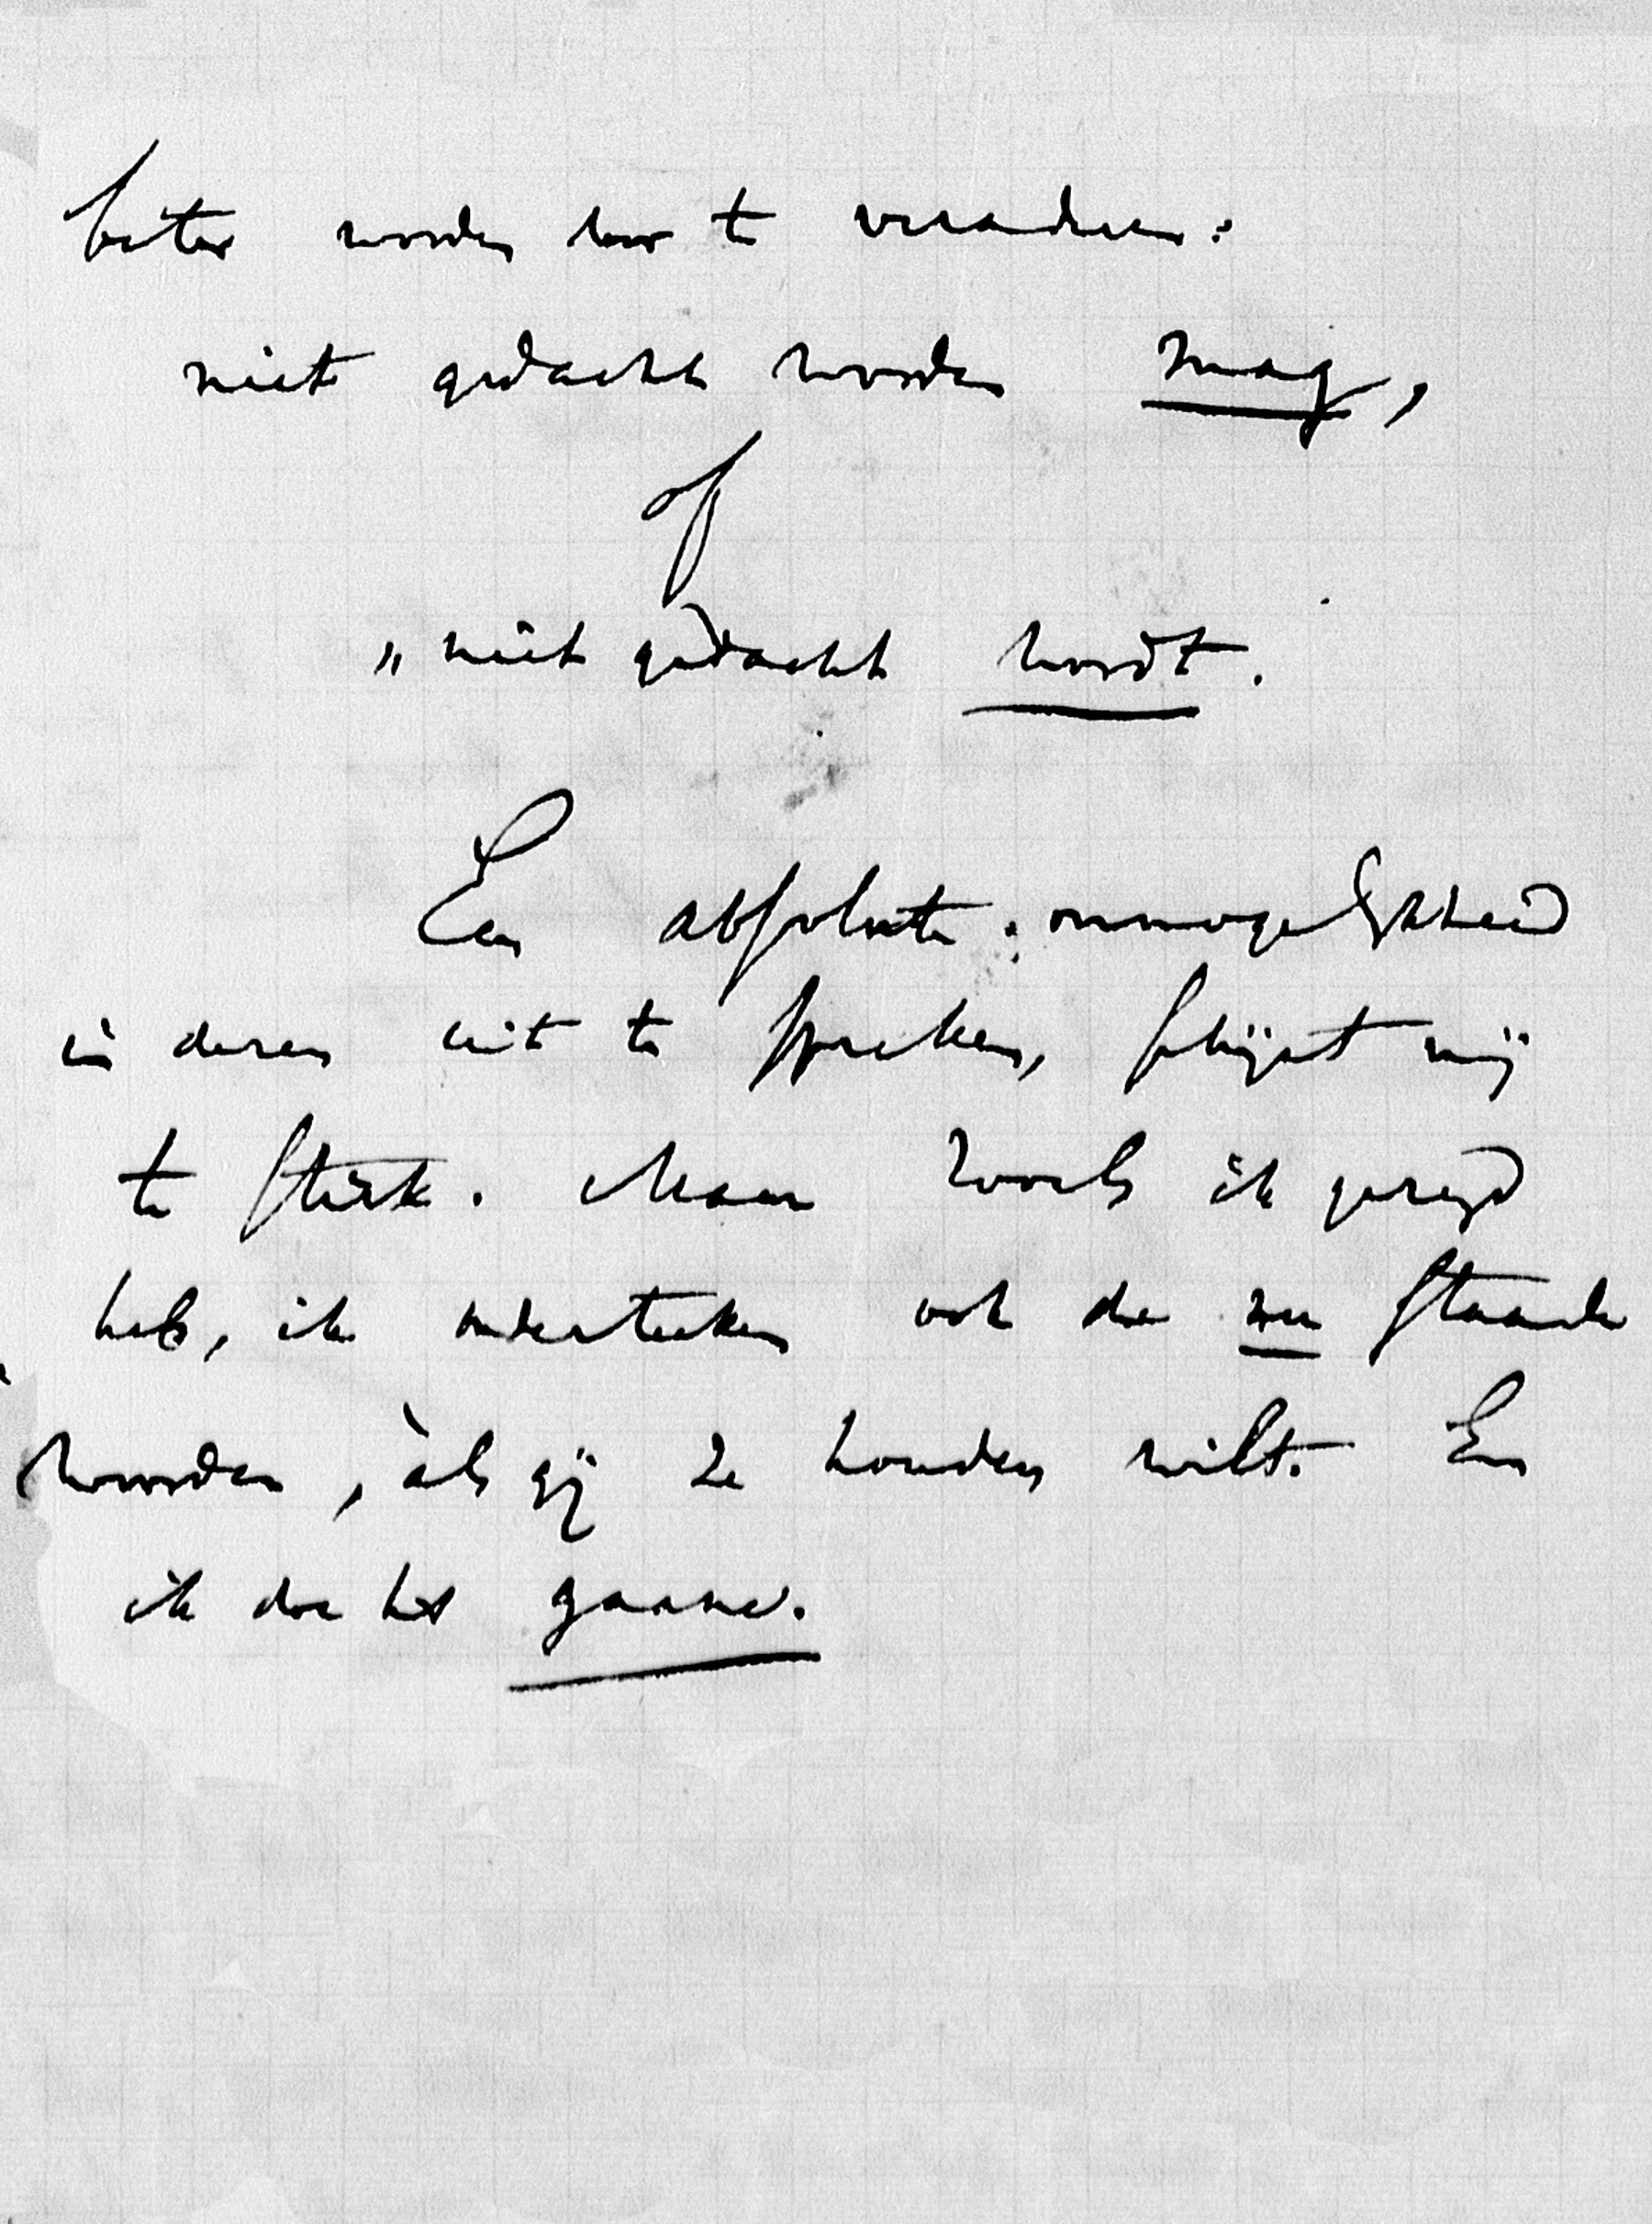 beter worden door te veranderen:
niet gedacht worden mag,
of
„niet gedacht wordt.
Een absolute onmogelijkheid
in dezen uit te spreken, schijnt mij
te sterk. Maar zooals ik gezegd
heb, ik onderteeken ook de nu staande
woorden, àls gij ze houden wilt. En
ik doe het gaarne.